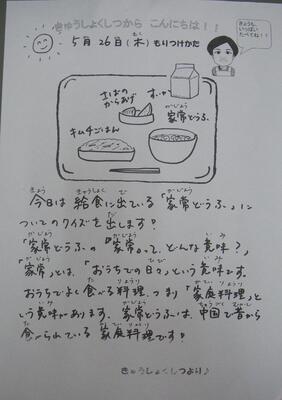 きゅうしょくしつから こんにちは！！
きょうも、いっぱいたべてね！！
5月26日(木)もりつけかた
さばのからあげ
ぎゅうにゅう
家常どうふ
キムチごはん
今日は 給食に出ている「家常どうふ」に
ついてのクイズを出します。
「家常どうふの『家常』って、どんな意味？」
「家常」とは、「おうちでの日々」という意味です。
おうちでよく食べる料理、つまり「家庭料理」と
いう意味があります。家常どうふは、中国で昔から
食べられている 家庭料理です。
きゅうしょくしつより♪